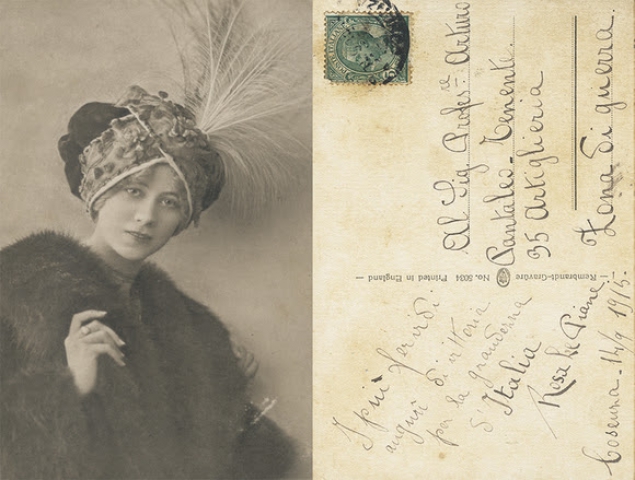 Al Sig. Profes.re Arturo
Pantaleo - Tenente
35 Artiglieria
Zona di guerra.
Rembrandt-Gravüre No. 5034 Printed in England
I più fervidi
auguri di vittoria
per la grandezza
d'Italia
Rosa
Cosenza - 14/9 1915.